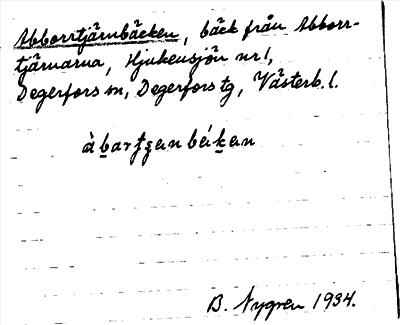 Abborrtjärnbäcken, bäck från Abborr-
tjärnarna, Hjukensjön nr 1,
Degerfors sn, Degerfors tg, Västerb. l.
B. Nygren 1934.